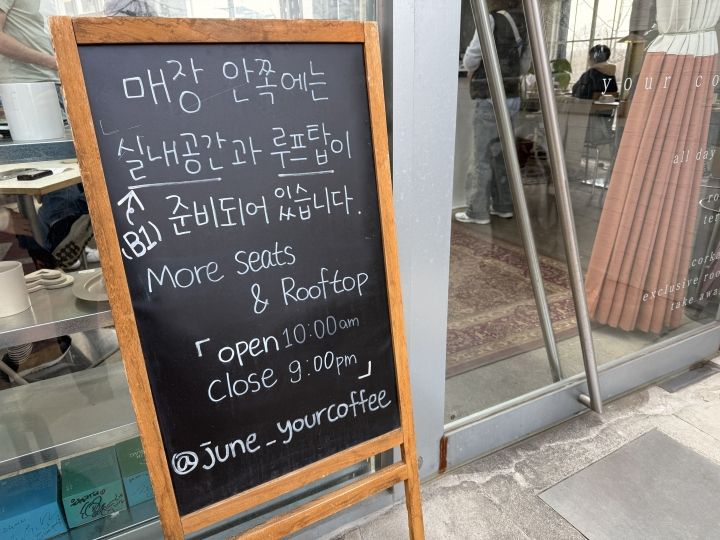 매장 안쪽에는
실내공간과 루프탑이
(B1) 준비되어 있습니다.
More seats
& Rooftop
「open 10:00am
close 9:00pm」
@june_yourcoffee
your co
all day
exclusive roo
take awa